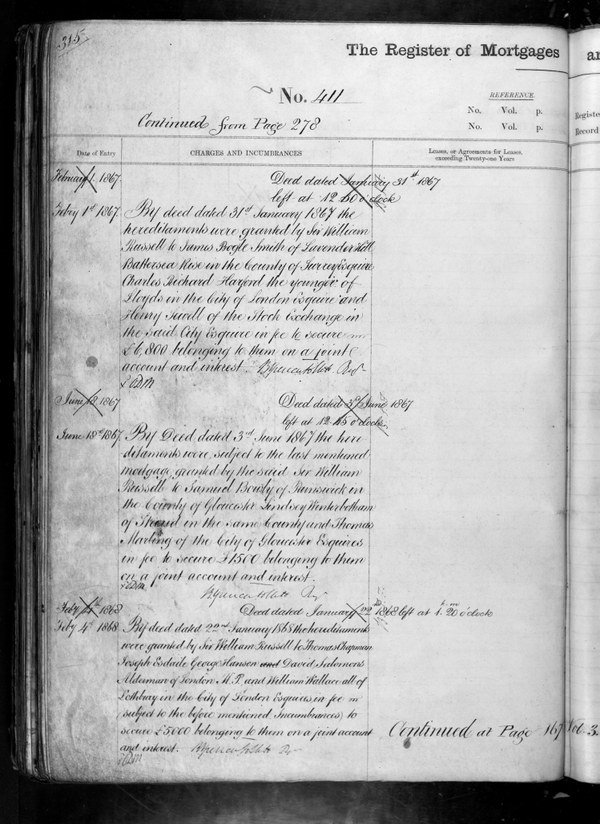 315
The Register of Mortgages an
No. 411
REFERENCE.
No. Vol. p.
No. Vol. p.
Registe
Record
Continued from Page 278
Date of Entry
CHARGES AND INCUMBRANCES
Leases, or Agreements for Leases, exceeding Twenty-one Years
February 1. 1867. Deed dated January 31st 1867
left at 12.50 o'clock
Feby 1st 1867. By deed dated 31st January 1867 the
hereditaments were granted by Sir William
Russell to James Bogle Smith of Lavender Hill
Battersea Rise in the County of Surrey Esquire
Charles Richard Harford the younger of
Lloyds in the City of London Esquire and
Henry Sewell of the Stock Exchange in
the said City Esquire in fee to secure
£6,800 belonging to them on a joint
account and interest.
June 18 1867 Deed dated 3d June 1867
left at 12.15 o'clock
June 18th 1867. By Deed dated 3rd June 1867 the here
ditaments were, subject to the last mentioned
mortgage, granted by the said Sir William
Russell to Samuel Bowly of
the County of Gloucester Lindsey Winterbotham
of Stroud in the same County and Thomas
Marling of the City of Gloucester Esquires
in fee to secure £1500 belonging to them
on a joint account and interest.
Feby 4th 1868 Deed dated January 22 1868 left at 1.20 o'clock
Feby 4th 1868 By deed dated 22nd January 1868 the hereditaments
were granted by Sir William Russell to Thomas Chapman
Joseph Esdaile George Hansen and David Salomons
Alderman of London M.P. and William Wallace all of
Lothbury in the City of London Esquires in fee
subject to the before mentioned Incumbrances) to
secure £5000 belonging to them on a joint account
and interest.
Continued at Page 169 Vol. 3.